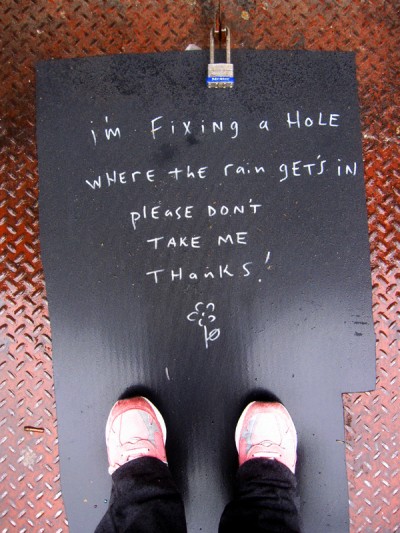 i'm Fixing a HoLE
WHERE the rain gET's iN
pLEASE DON'T
TAKE ME
THankS!